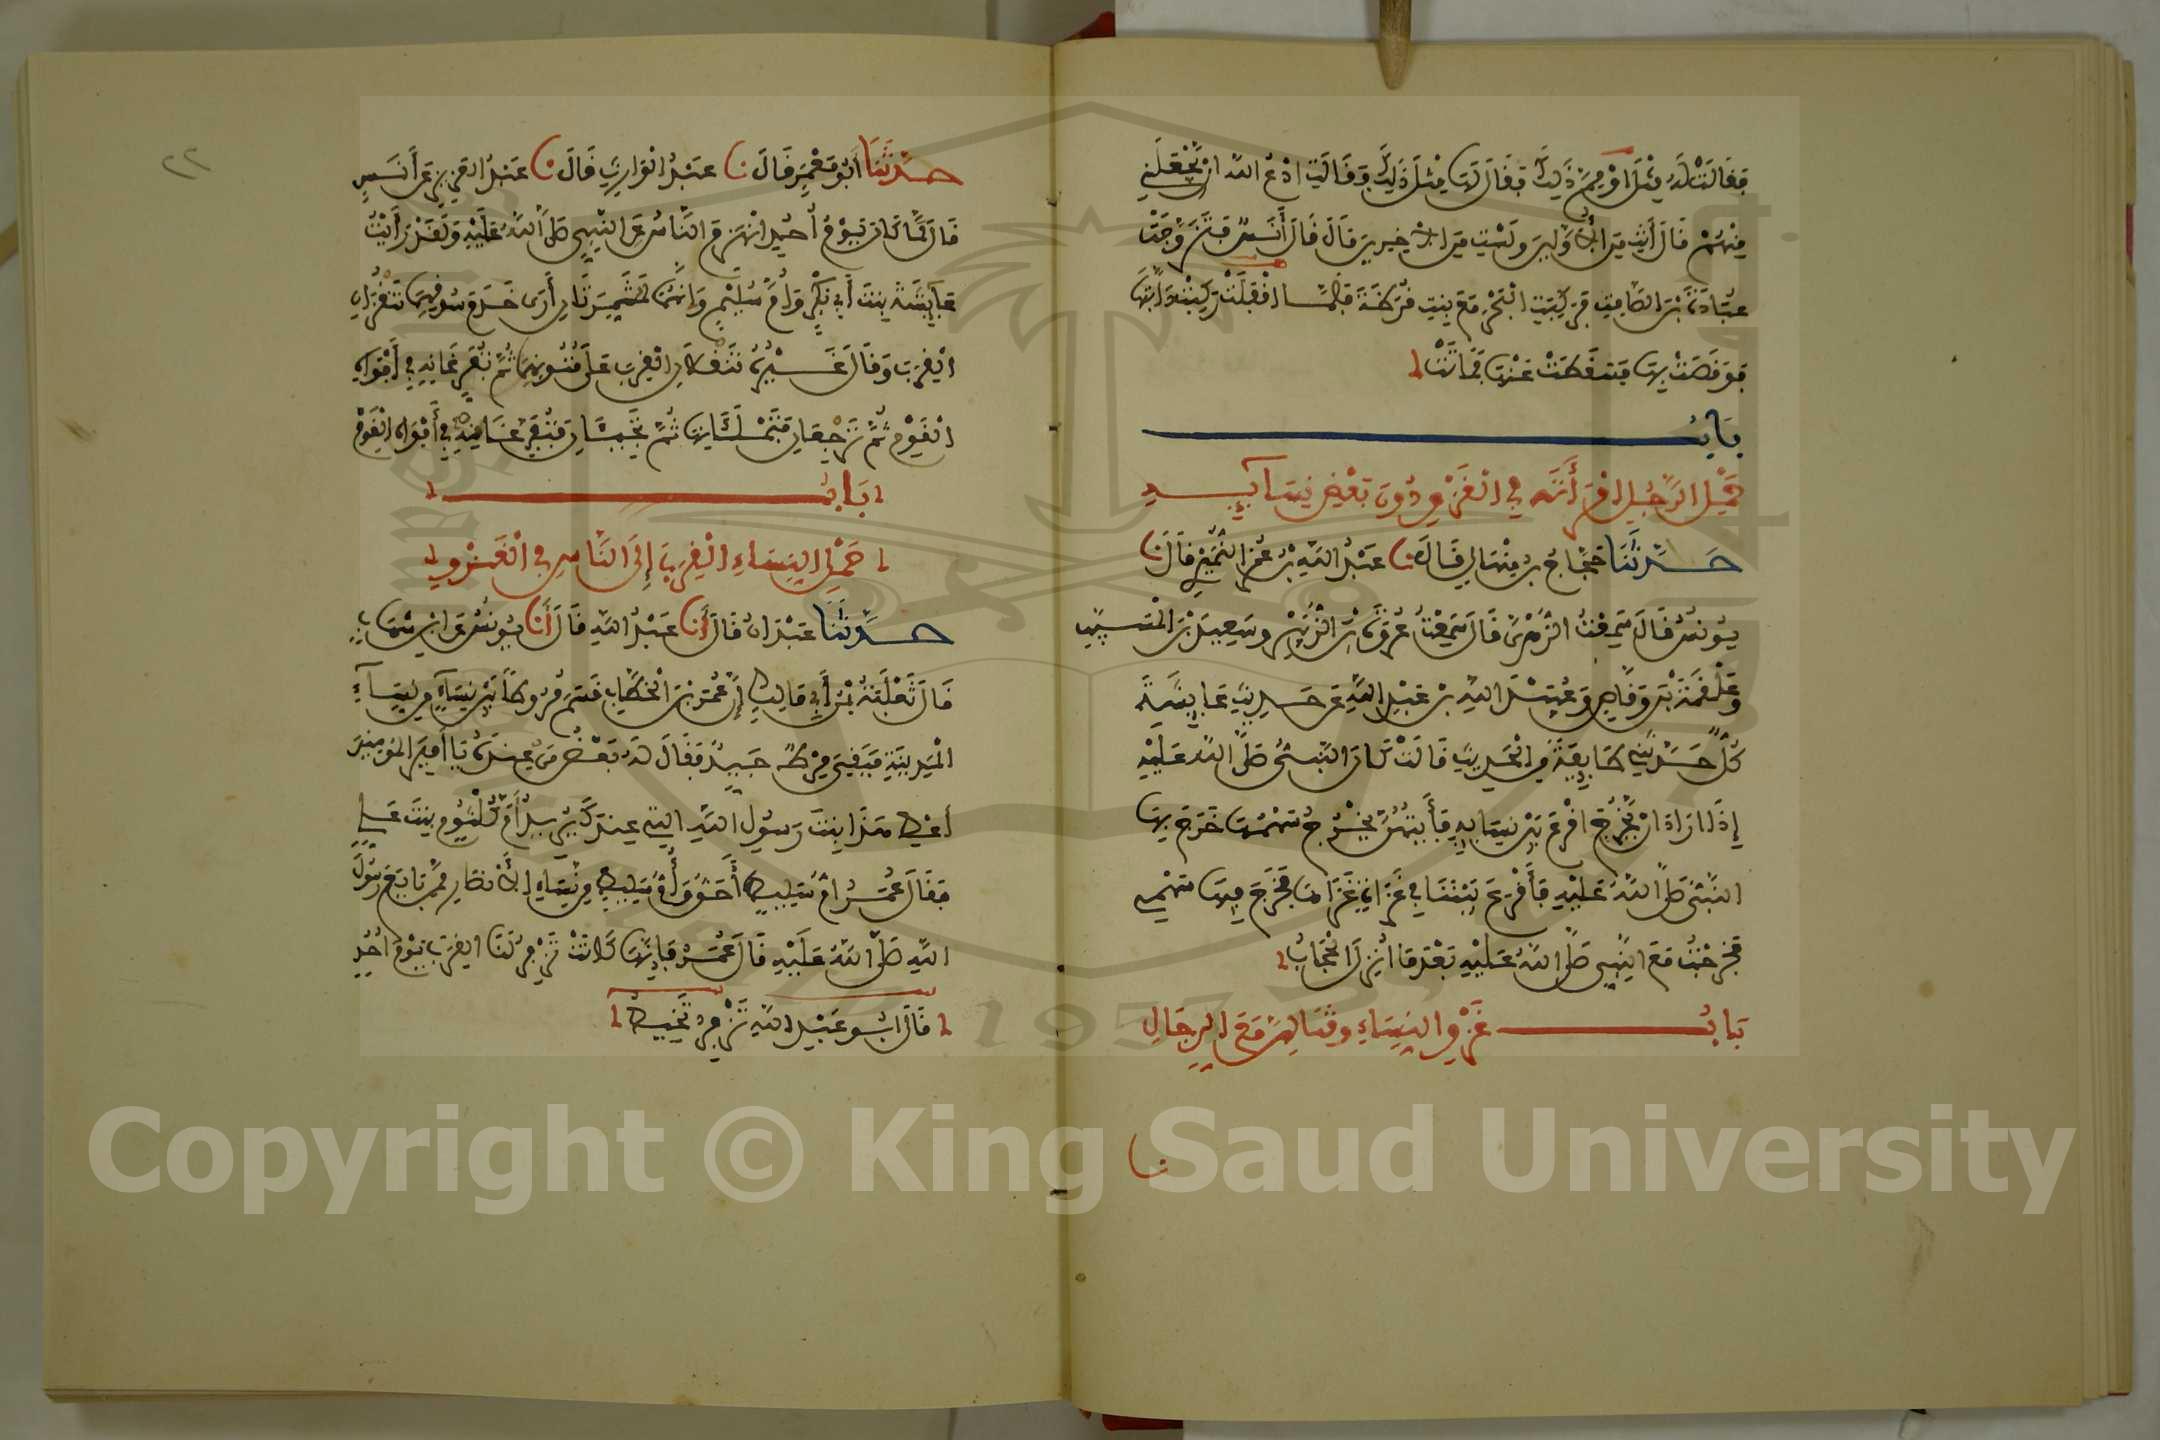 فَقَالَتْ لَهُ مِثْلَ أَوْ مِمَّ ذَلِكَ فَقَالَ لَهَا مِثْلَ ذَلِكَ فَقَالَتِ ادْعُ اللَّهَ أَنْ يَجْعَلَنِي
مِنْهُمْ قَالَ أَنْتِ مِنَ الْأَوَّلِينَ وَلَسْتِ مِنَ الْآخِرِينَ قَالَ قَالَ أَنَسٌ فَتَزَوَّجَتْ
عُبَادَةَ بْنَ الصَّامِتِ فَرَكِبَتِ الْبَحْرَ مَعَ بِنْتِ قَرَظَةَ فَلَمَّا قَفَلَتْ رَكِبَتْ دَابَّتَهَا
فَوَقَصَتْ بِهَا فَسَقَطَتْ عَنْهَا فَمَاتَتْ
بَابُ
حَمْلِ الرَّجُلِ امْرَأَتَهُ فِي الْغَزْوِ دُونَ بَعْضِ نِسَائِهِ
حَدَّثَنَا حَجَّاجُ بْنُ مِنْهَالٍ قَالَ نَا عَبْدُ اللَّهِ بْنُ عُمَرَ النُّمَيْرِي قَالَ نَا
يُونُسُ قَالَ سَمِعْتُ الزُّهْرِيَّ قَالَ سَمِعْتُ عُرْوَةَ بْنَ الزُّبَيْرِ وَسَعِيدَ بْنَ الْمُسَيِّبِ
وَعَلْقَمَةَ بْنَ وَقَّاصٍ وَعُبَيْدَ اللَّهِ بْنَ عَبْدِ اللَّهِ عَنْ حَدِيثِ عَائِشَةَ
كُلٌّ حَدَّثَنِي طَائِفَةً مِنَ الْحَدِيثِ قَالَتْ كَانَ النَّبِيُّ صَلَّى اللَّهُ عَلَيْهِ
إِذَا أَرَادَ أَنْ يَخْرُجَ أَقْرَعَ بَيْنَ نِسَائِهِ فَأَيَّتُهُنَّ يَخْرُجُ سَهْمُهَا خَرَجَ بِهَا
النَّبِيُّ صَلَّى اللَّهُ عَلَيْهِ فَأَقْرَعَ بَيْنَنَا فِي غَزَاةٍ غَزَاهَا فَخَرَجَ فِيهَا سَهْمِي
فَخَرَجْتُ مَعَ النَّبِيِّ صَلَّى اللَّهُ عَلَيْهِ بَعْدَ مَا أُنْزِلَ الْحِجَابُ
بَابُ غَزْوِ النِّسَاءِ وَقِتَالِهِنَّ مَعَ الرِّجَالِ
نا
٢٢
حَدَّثَنَا أَبُو مَعْمَرٍ قَالَ نَا عَبْدُ الْوَارِثِ قَالَ نَا عَبْدُ الْعَزِيزِ عَنْ أَنَسٍ
قَالَ لَمَّا كَانَ يَوْمُ أُحُدٍ انْهَزَمَ النَّاسُ عَنِ النَّبِيِّ صَلَّى اللَّهُ عَلَيْهِ وَلَقَدْ رَأَيْتُ
عَائِشَةَ بِنْتَ أَبِي بَكْرٍ وَأُمَّ سُلَيْمٍ وَإِنَّهُمَا لَمُشَمِّرَتَانِ أَرَى خَدَمَ سُوقِهِمَا تَنْقُزَانِ
الْقِرَبَ وَقَالَ غَيْرُهُ تَنْقُلَانِ الْقِرَبَ عَلَى مُتُونِهِمَا ثُمَّ تُفْرِغَانِهِ فِي أَفْوَاهِ
الْقَوْمِ ثُمَّ تَرْجِعَانِ فَتَمْلَآنِهَا ثُمَّ تَجِيئَانِ فَتُفْرِغَانِهِ فِي أَفْوَاهِ الْقَوْمِ
بَابُ
حَمْلِ النِّسَاءِ الْقِرَبَ إِلَى النَّاسِ فِي الْغَزْوِ
حَدَّثَنَا عَبْدَانُ قَالَ أَنَا عَبْدُ اللَّهِ قَالَ أَنَا يُونُسُ عَنِ ابْنِ شِهَابٍ
قَالَ ثَعْلَبَةُ بْنُ أَبِي مَالِكٍ إِنَّ عُمَرَ بْنَ الْخَطَّابِ قَسَمَ مُرُوطًا بَيْنَ نِسَاءٍ مِنْ نِسَاءِ
الْمَدِينَةِ فَبَقِيَ مِرْطٌ جَيِّدٌ فَقَالَ لَهُ بَعْضُ مَنْ عِنْدَهُ يَا أَمِيرَ الْمُؤْمِنِينَ
أَعْطِ هَذَا بِنْتَ رَسُولِ اللَّهِ الَّتِي عِنْدَكَ يُرِيدُ أُمَّ كُلْثُومٍ بِنْتَ عَلِيٍّ
فَقَالَ عُمَرُ أُمُّ سَلِيطٍ أَحَقُّ وَأُمُّ سَلِيطٍ مِنْ نِسَاءِ الْأَنْصَارِ مِمَّنْ بَايَعَ رَسُولَ
اللَّهِ صَلَّى اللَّهُ عَلَيْهِ قَالَ عُمَرُ فَإِنَّهَا كَانَتْ تَزْفِرُ لَنَا الْقِرَبَ يَوْمَ أُحُدٍ
قَالَ أَبُو عَبْدِ اللَّهِ تَزْفِرُ تَخِيطُ
Copyright © King Saud University
1957